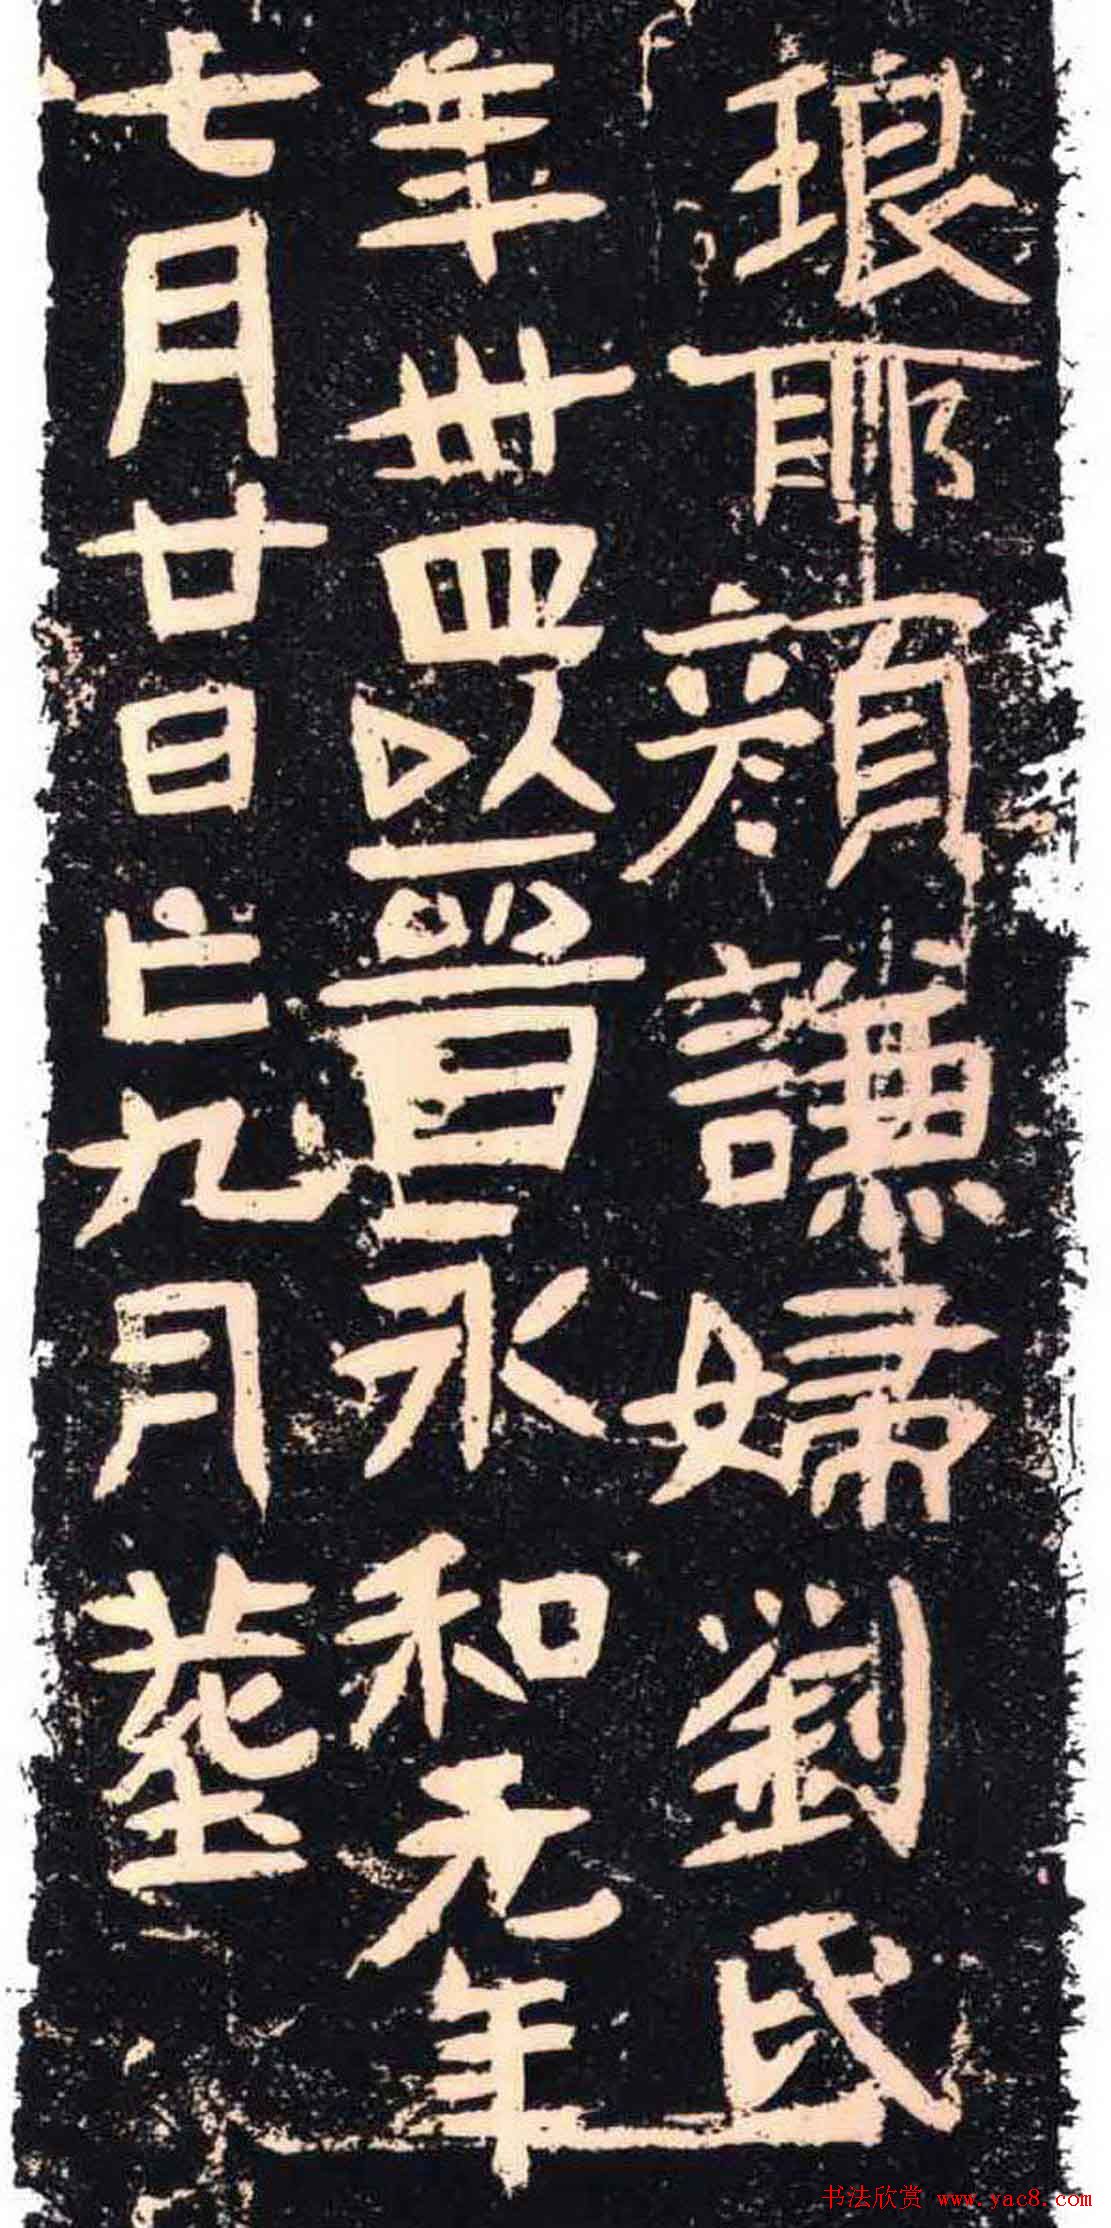 琅耶顔謙婦劉氏
年卅四以晉永和元年
七月廿日亡九月葬
书法欣赏 www.yac8.com